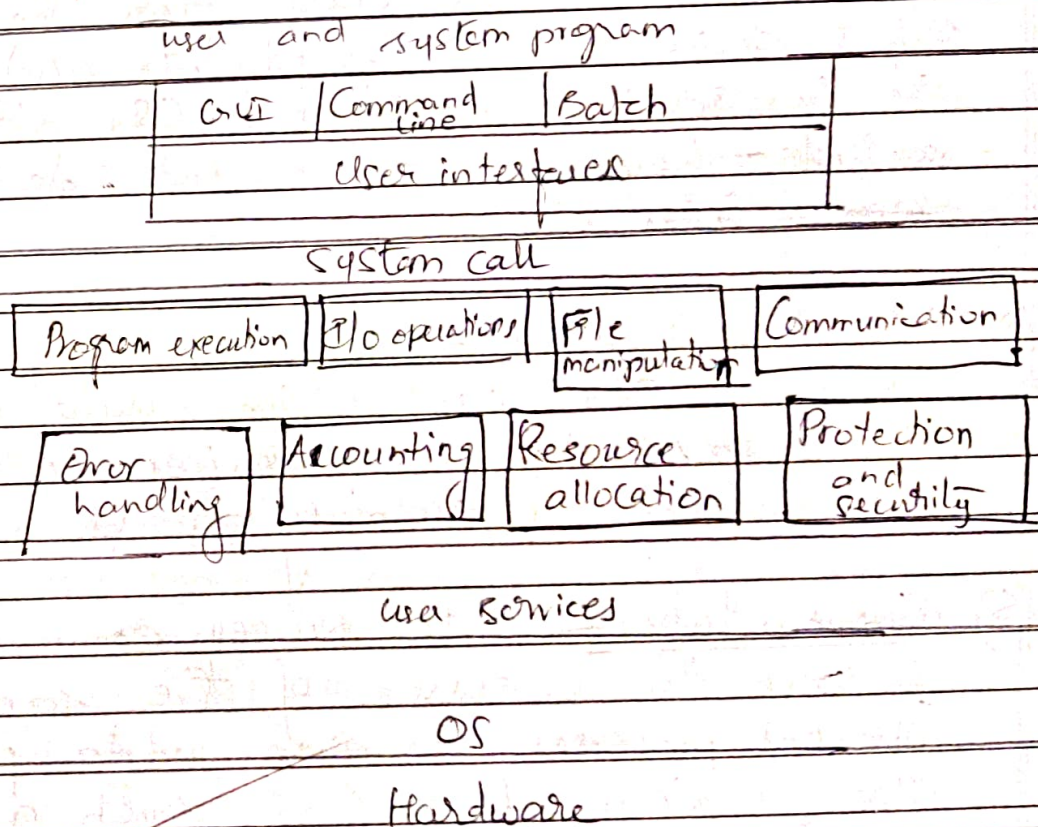 user and system program
GUI Command Line Batch
User interfaces
System call
Program execution I/o operations File manipulation Communication
Error handling Accounting Resource allocation Protection and security
user services
OS
Hardware